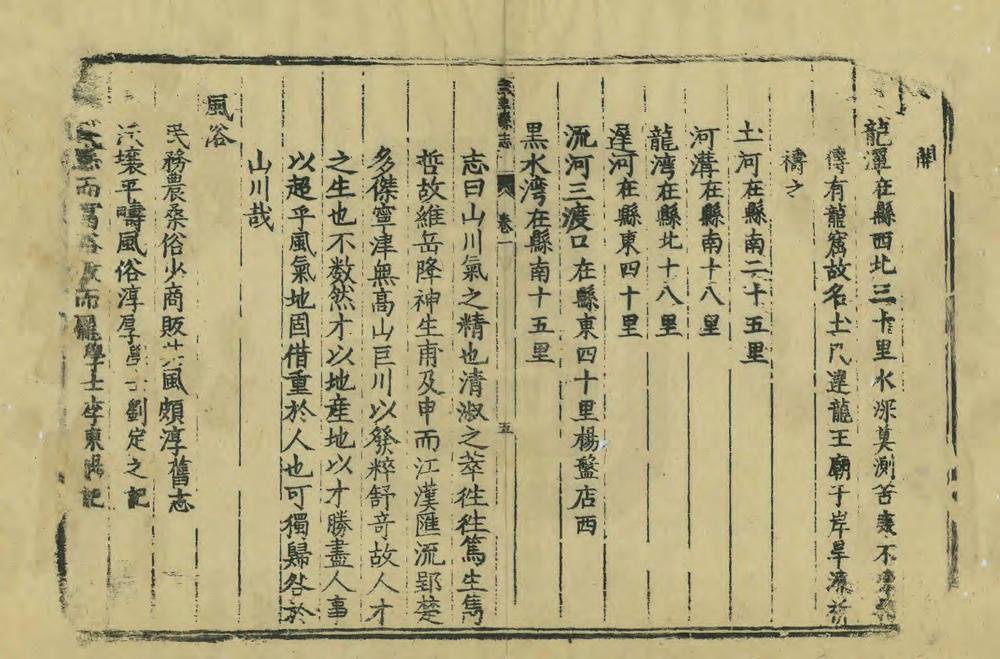 開
龍潭在縣西北三十里水深莫測苦衷不
傳有龍窩故名土人建龍王廟于岸旱澇祈
禱之
土河在縣南二十五里
河溝在縣南十八里
龍湾在縣北十八里
遅河在縣東四十里
流河三渡口在縣東四十里楊盤店西
黒水湾在縣南十五里
縣志 卷一 五
志曰山川氣之精也清淑之萃徃徃篤生雋
哲故維岳降神生甫及申而江漢匯流郢楚
多傑寧津無髙山巨川以發粹舒竒故人才
之生也不数然才以地産地以才勝盡人事
以超乎風氣地固借重於人也可獨歸咎於
山川哉
風俗
民務農桑俗少商販其風頗淳舊志
沃壤平疇風俗淳厚學士劉定之記
而富俗 而 學士李東陽記